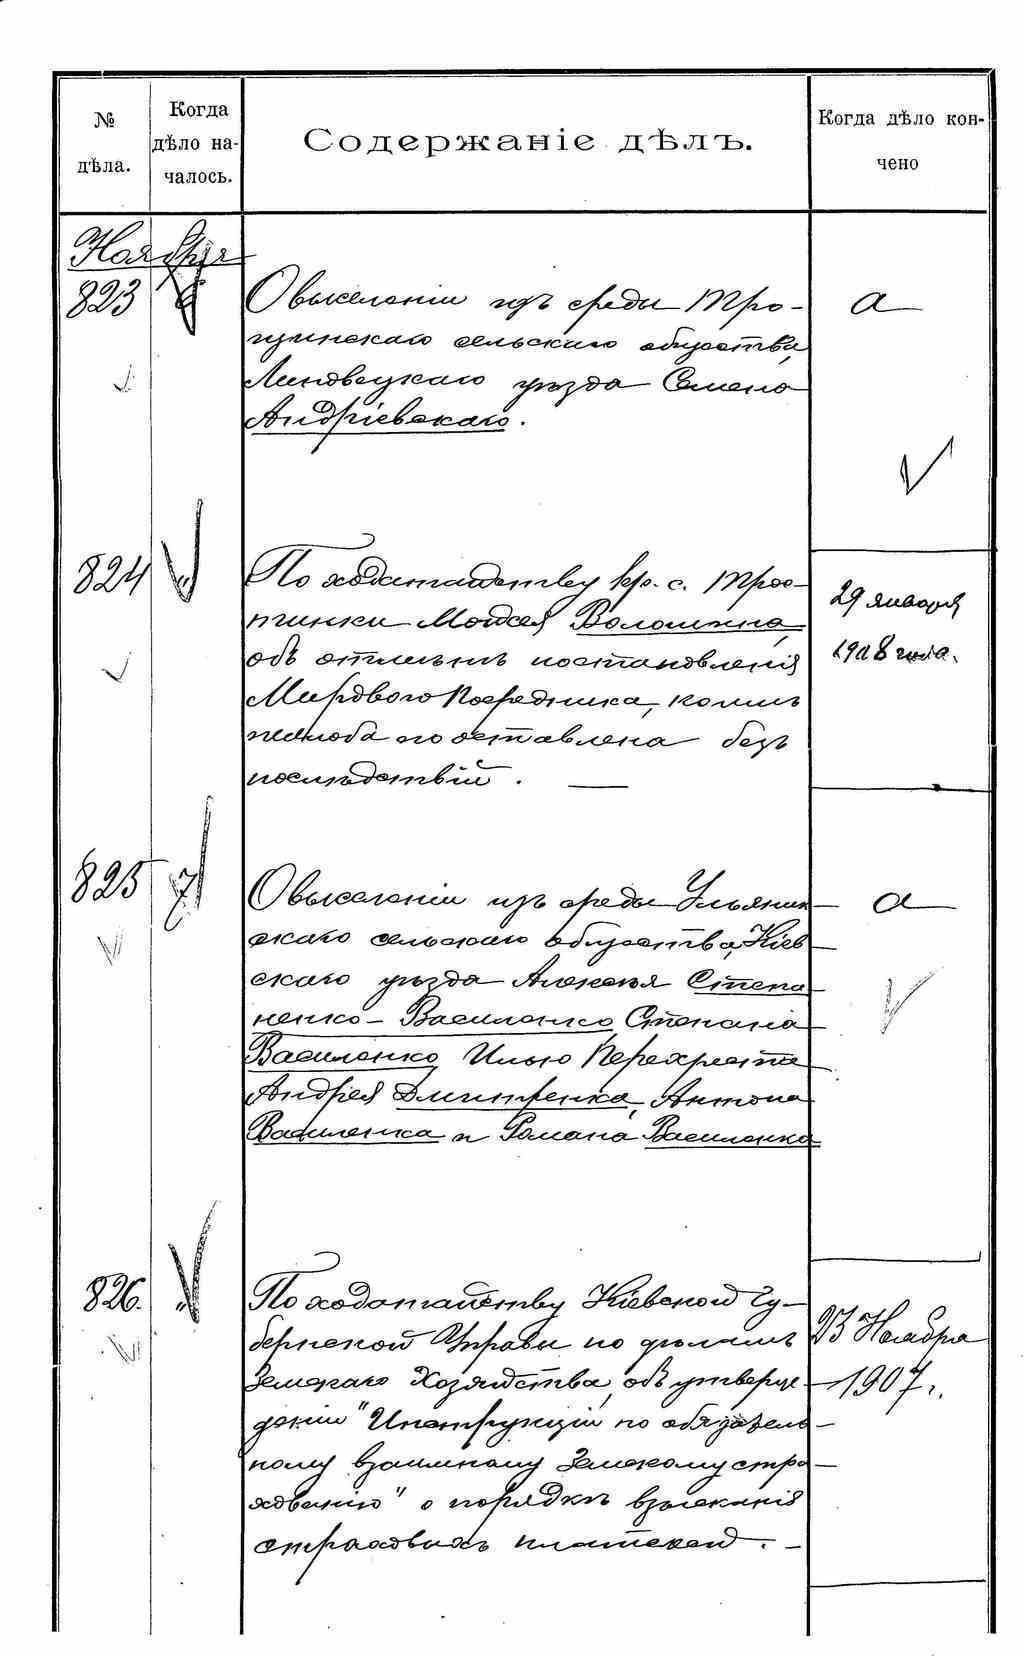 № дѣла.
Когда дѣло началось.
Содержаніе дѣлъ.
Когда дѣло кончено
Ноября
823 6 О выселеніи изъ среды Тро- а
щинскаго сельскаго общества,
Липовецкаго уѣзда Семена
Андріевскаго.
824 „ По ходатайству кр. с. Трос-
тинки Мойсея Воломина, 29 января
объ отмѣнѣ постановленія 1908 года.
Мирового Посредника, коимъ
жалоба его оставлена безъ
послѣдствій. —
825 7 О выселеніи изъ среды Ульяник- а
скаго сельскаго общества, Кіев-
скаго уѣзда Алексѣя Степа-
ненко-Василенко, Степана
Василенко, Илью Перехреста
Андрея Дмитренка, Антона
Василенка и Романа Василенка
826. „ По ходатайству Кіевской Гу-
бернской Управы по дѣламъ 23 Ноября
Земскаго Хозяйства, объ утверж- 1907 г.
деніи "Инструкціи по обязатель-
ному взаимному Земскому стра-
хованію" о порядкѣ взысканія
страховыхъ платежей. —